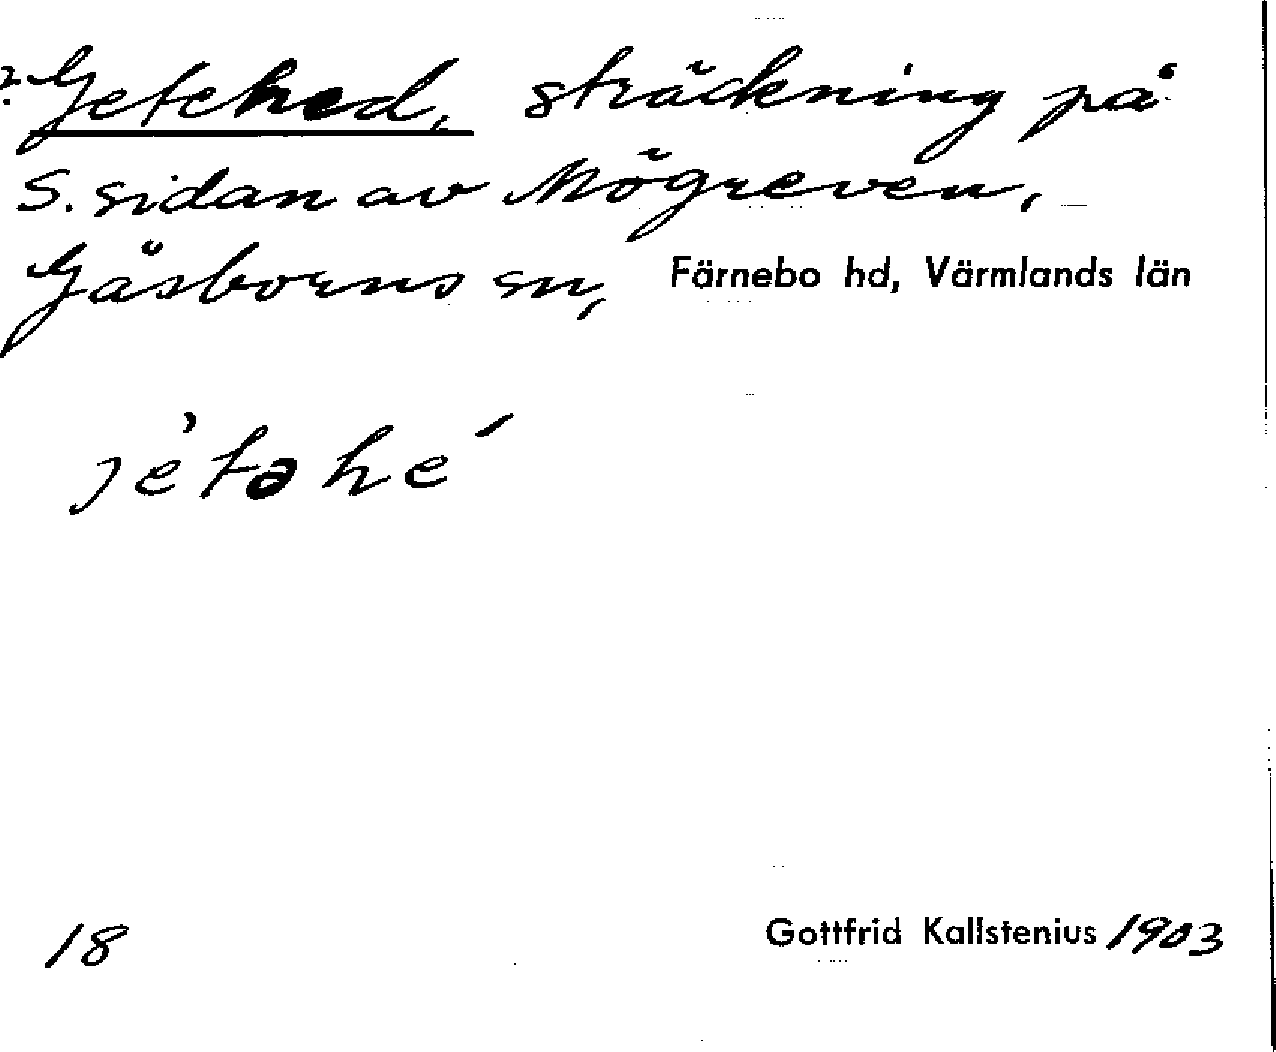 ?. Getehed, sträckning på
S. sidan av Mögreven,
Gåsborns sn, Färnebo hd, Värmlands län
jètəhé
18 Gottfrid Kallstenius 1903